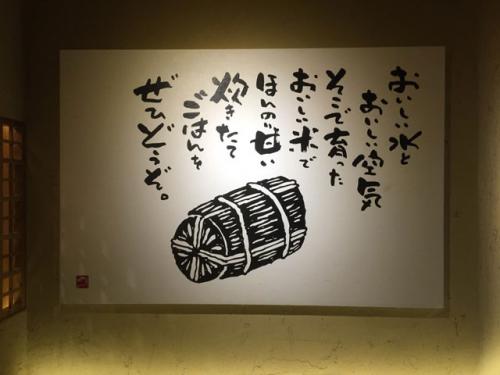 おいしい水と
おいしい空気
そこで育った
おいしい米で
ほんのり甘い
炊きたて
ごはんを
ぜひどうぞ。